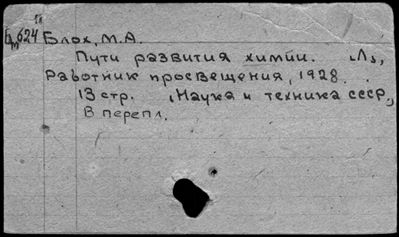 624 Блох, М.А.
Пути развития химии. Л.,
Работник просвещения, 1928.
13 стр. (Наука и техника СССР,
В перепл.